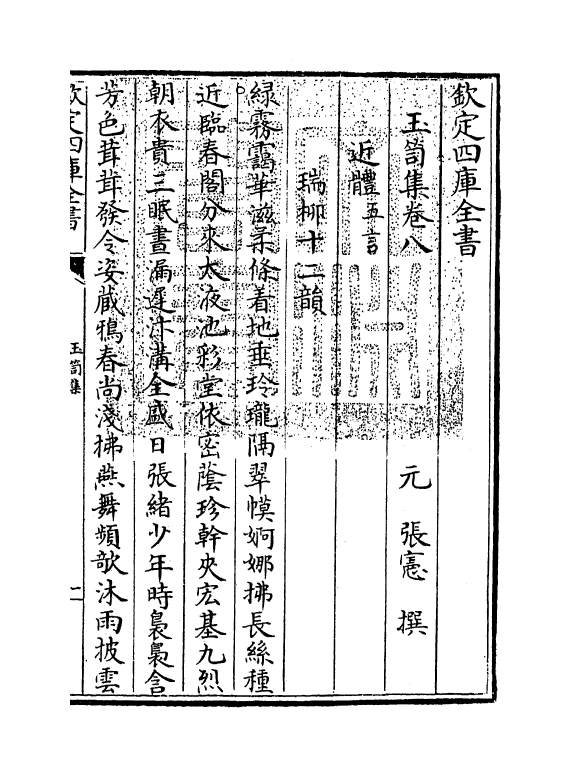 欽定四庫全書
玉笥集卷八
元 張憲 撰
近體五言
瑞柳十二韻
緑霧靄華滋柔條着地垂玲瓏隔翠幙婀娜拂長絲種
近臨春閣分來太液池彩堂依宻蔭珍幹夾宏基九烈
朝衣貴三眠晝漏遲汴溝全盛日張緒少年時裊裊含
芳色茸茸發令姿蔵鴉春尚淺拂燕舞頻欹沐雨披雲
欽定四庫全書
玉笥集
二